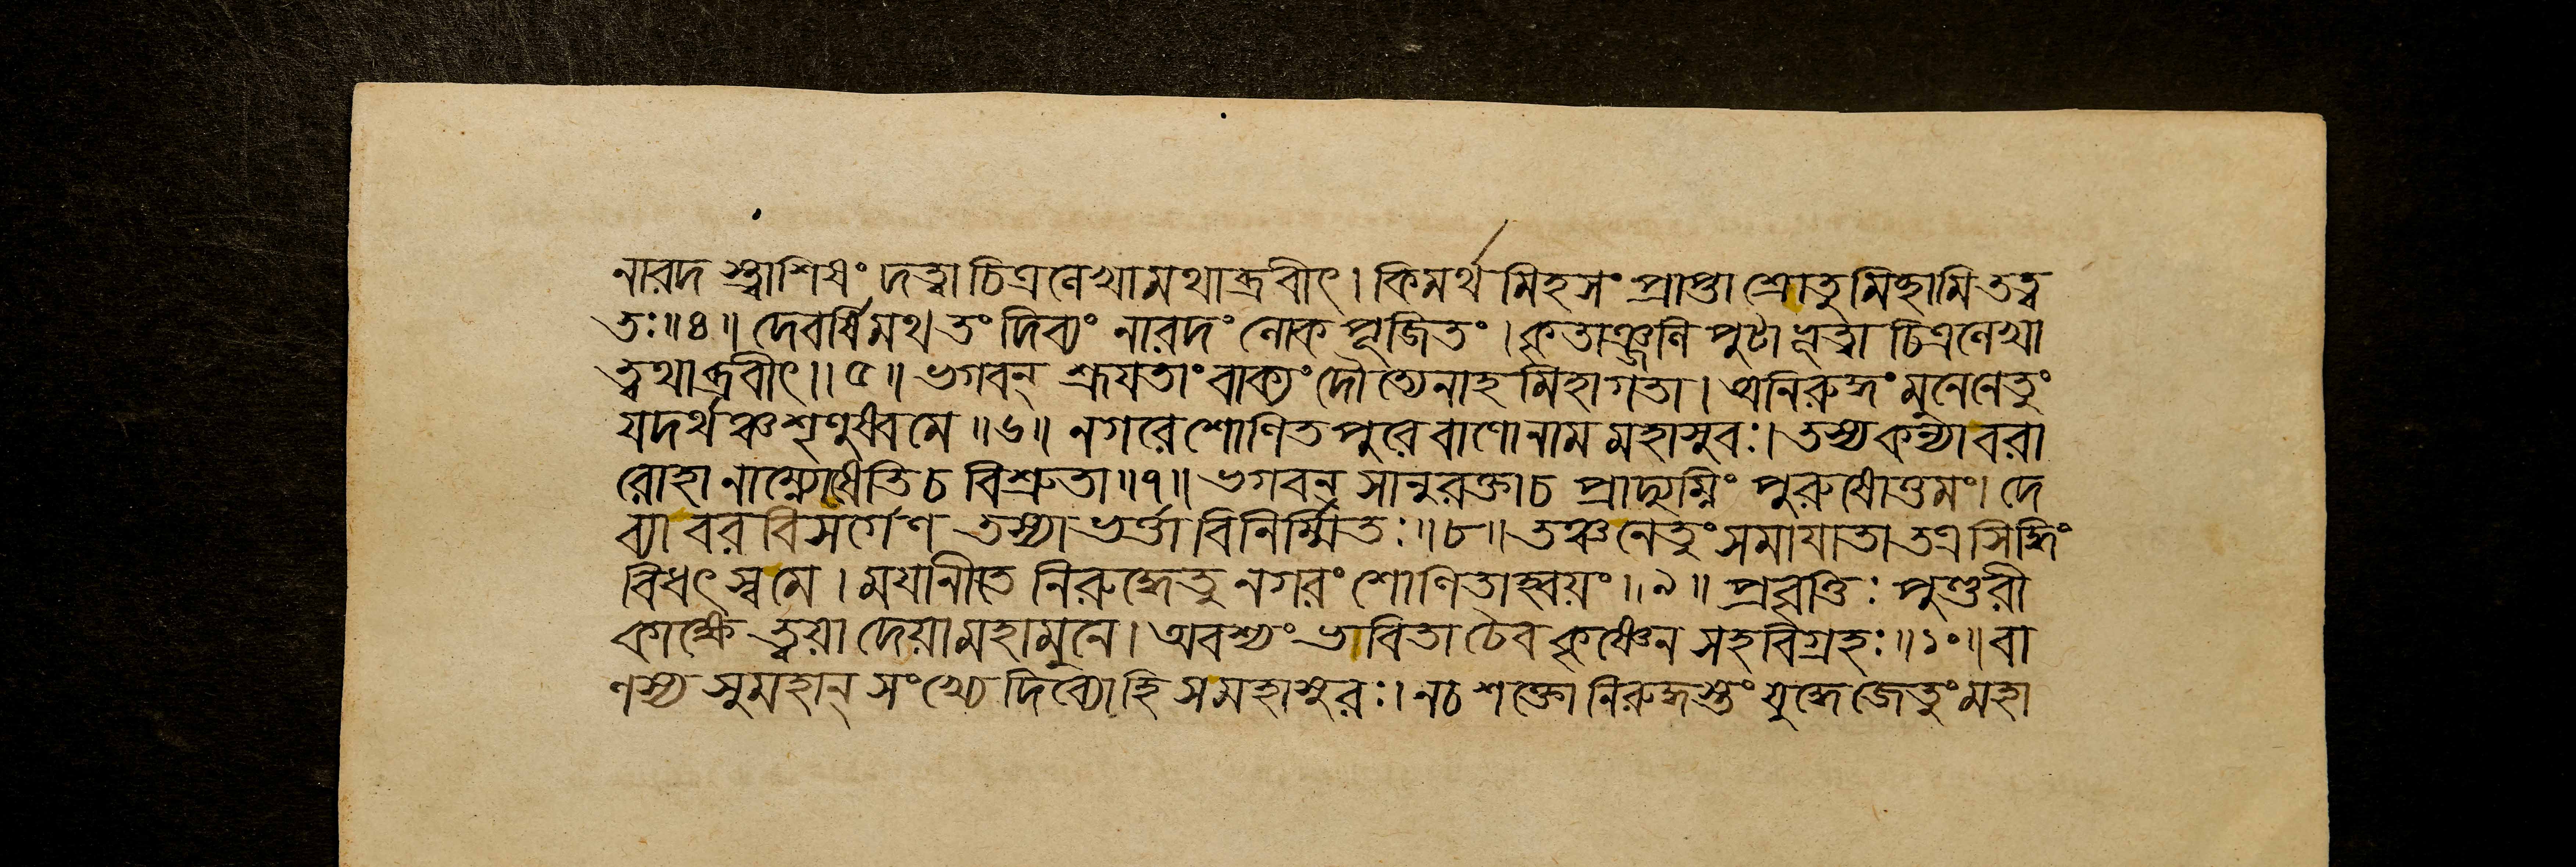 নারদস্ত্বাশিষং দত্বা চিত্রলেখামথাব্রবীৎ । কিমর্থমিহ সংপ্রাপ্তা শ্রোতুমিচ্ছামি তত্ত্ব
তঃ ॥ ৪ ॥ দেবর্ষিমথ তং দিব্যং নারদং লোকপূজিতং । কৃতাঞ্জলিপুটা ভূত্বা চিত্রলেখা
ত্বথাব্রবীৎ ।। ৫ ॥ ভগবন্ শ্রূযতাং বাক্যং দৌত্যেনাহমিহাগতা । অনিরুদ্ধং মুনে নেতুং
যদর্থঞ্চ শৃণুষ্ব মে ॥ ৬ ॥ নগরে শোণিতপুরে বাণো নাম মহাসুবঃ । তস্য কন্যা বরা
রোহা নাম্নোষেতি চ বিশ্রুতা ॥ ৭ ॥ ভগবন্ সানুরক্তা চ প্রাদ্যুম্নিং পুরুষোত্তমং । দে
ব্যা বরবিসর্গেণ তস্যা ভর্ত্তা বিনির্ম্মিতঃ ॥ ৮ ॥ তঞ্চ নেতুং সমাযাতা তত্র সিদ্ধিং
বিধৎস্ব মে । মযানীতে নিরুদ্ধে তু নগরং শোণিতাহ্বয়ং ।। ৯ ॥ প্রবৃত্তিঃ পুণ্ডরী
কাক্ষে ত্বয়া দেয়া মহামুনে । অবশ্যং ভাবিতা চৈব কৃষ্ণেন সহ বিগ্রহঃ ॥ ১০ ॥ বা
ণস্য সুমহান্ সংখ্যে দিব্যো হি স মহাসুরঃ । ন চ শক্তো নিরুদ্ধস্তং যুদ্ধে জেতুং মহা